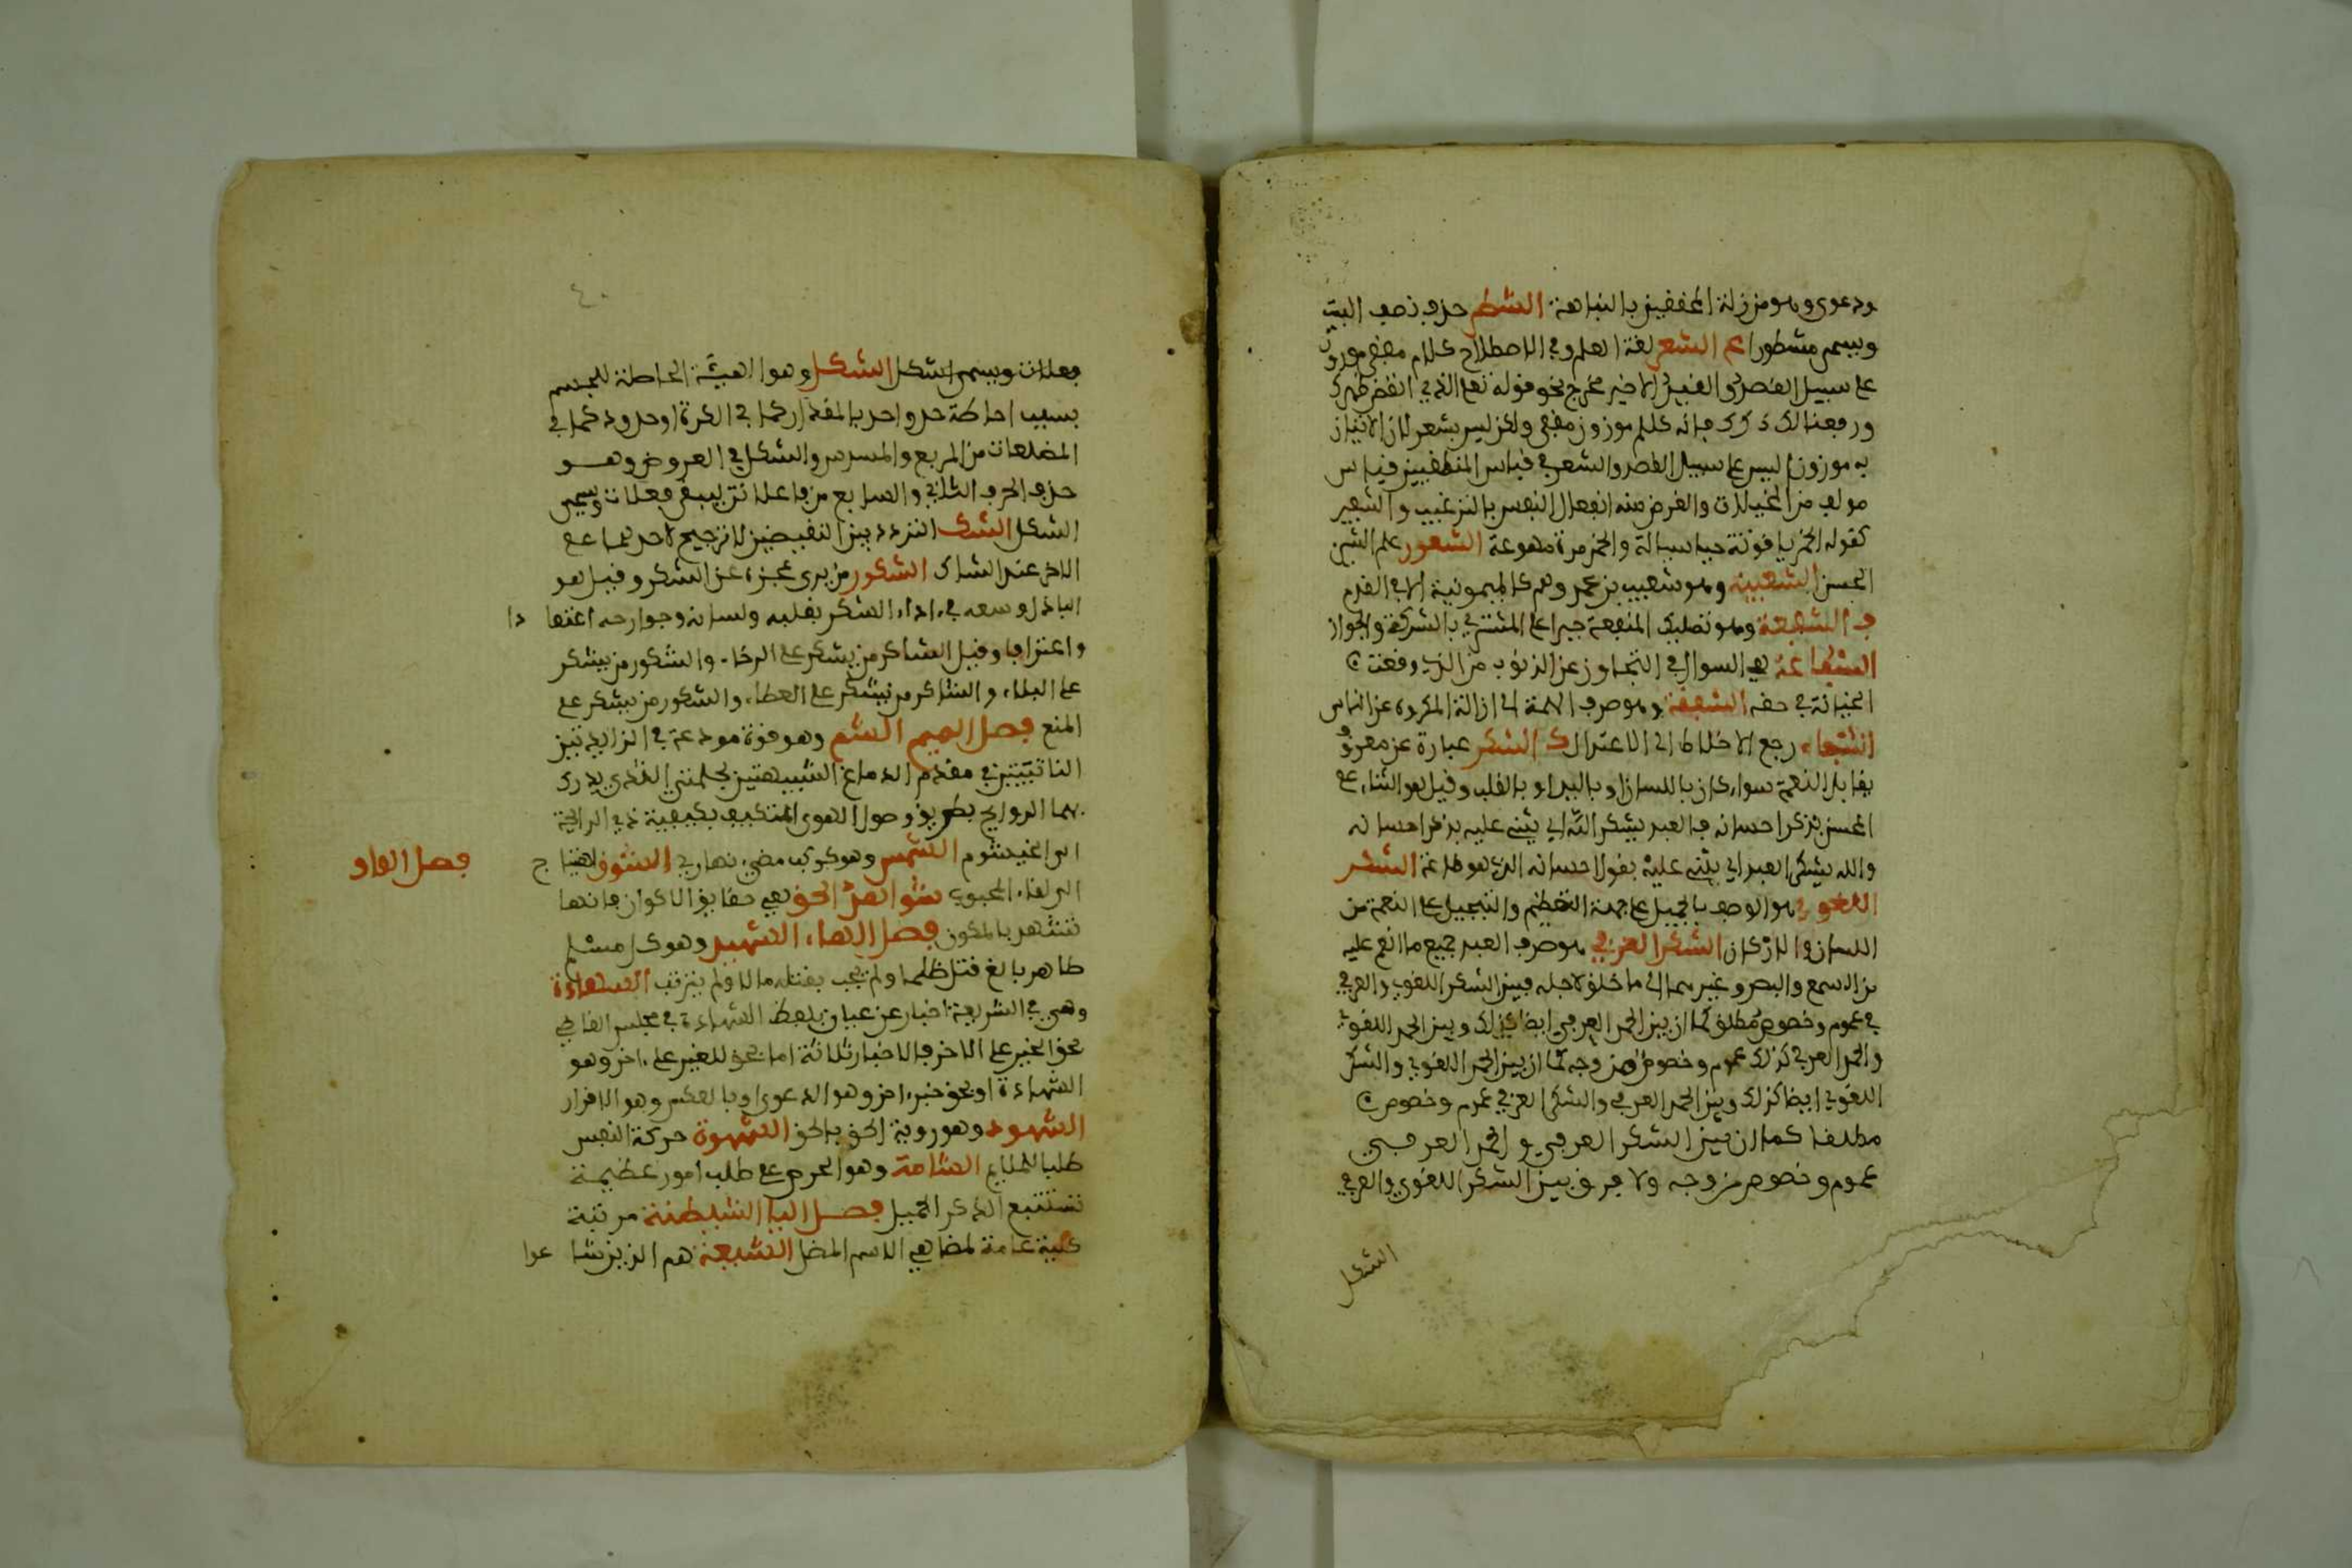 ودعوى وهو من زلة المحققين بالنباهة الشطر حذف نصف البيت
ويسمى مشطورا ع الشعر لغة العلم وفي الاصطلاح كلام مقفى موزون
على سبيل القصد والقيد الاخير مخرج نحو قوله تعالى الذي انقض ظهرك
ورفعنا لك ذكرك فانه كلام موزون مقفى ولكن ليس بشعر لان الاتيان
به موزونا ليس على سبيل القصد والشعر في قياس المنطقيين قياس
مولف من المخيلات والغرض منه انفعال النفس بالترغيب والتنفير
كقوله الخمر ياقوتة سيالة والخمر مرة مهوعة الشعور علم الشيء
الحس الشعيبية وهو شعيب بن محمد وهم كالميمونية الا في القدر
ف الشفعة وهو تمليك المنفعة جبرا على المشتري بالشركة والجوار
الشفاعة هي السوال في التجاوز عن الذنوب من الذي وقعت
الجناية في حقه الشفقة وهو صرف الهمة الى ازالة المكروه عن الناس
الشفاء رجع الاخلاط الى الاعتدال ك الشكر عبارة عن معروف
يقابل النعمة سواء كان باللسان او باليد او بالقلب وقيل هو الثناء على
المحسن بذكر احسانه فالعبد يشكر الله اي يثني عليه بذكر احسانه
والله يشكر العبد اي يثني عليه بقول احسانه الذي هو طاعة الشكر
اللغوي هو الوصف بالجميل على جهة التعظيم والتبجيل على النعمة من
اللسان والاركان الشكر العرفي هو صرف العبد جميع ما انعم عليه
من السمع والبصر وغيرهما الى ما خلق لاجله فبين الشكر اللغوي والعرفي
في عموم وخصوص مطلق كما ان بين الحمد العرفي ايضا كذلك وبين الحمد اللغوي
والحمد العرفي كذلك عموم وخصوص من وجه كما ان بين الحمد اللغوي والشكر
اللغوي ايضا كذلك وبين الحمد العرفي والشكر العرفي عموم وخصوص
مطلقا كما ان بين الشكر العرفي والحمد العرفي
عموم وخصوص من وجه ولا فرق بين الشكر اللغوي والعرفي
الشكل
٤٠
فعلات ويسمى اشكل الشكل وهو الهيئة الحاصلة للجسم
بسبب احاطة حد واحد بالمقدار كما في الكرة او حدود كما في
المضلعات من المربع والمسدس والشكل في العروض وهو
حذف الحرف الثاني والسابع من فاعلاتن ليبقى فعلات ويسمى
الشكل الشك التردد بين النقيضين لا ترجيح لاحدهما على
الاخر عند الشاك الشكور من يرى عجزه عن الشكر وقيل هو
الباذل وسعه في اداء الشكر بقلبه ولسانه وجوارحه اعتقادا
واعترافا وقيل الشاكر من يشكر على الرخاء والشكور من يشكر
على البلاء والشاكر من يشكر على العطاء والشكور من يشكر على
المنع فصل الميم الشم وهو قوة مودعة في الزائدتين
الناتئتين في مقدم الدماغ الشبيهتين بحلمتي الثدي يدرك
بهما الروايح بطريق وصول الهوى المتكيف بكيفية ذي الرايحة
الى الخيشوم الشمس وهو كوكب مضيء نهاري الشوق اهتياج
فصل الواو
الى لقاء المحبوب شواهد الحق هي حقايق الاكوان فانها
تشهد بالمكون فصل الهاء الشهيد وهو كل مسلم
طاهر بالغ قتل ظلما ولم يجب بقتله مال ولم يرتث الشهادة
وهي في الشريعة اخبار عن عيان بلفظ الشهادة في مجلس القاضي
بحق الغير على الاخر فالاخبار ثلاثة اما بحق للغير على اخر وهو
الشهادة او بحق مخبر اخر وهو الدعوى او بالعكس وهو الاقرار
الشهود وهو روية الحق بالحق الشهوة حركة النفس
طلبا للملايم الشهامة وهو الحرص على طلب امور عظيمة
تستتبع الذكر الجميل فصل اليا الشيطنة مرتبة
كلية عامة لمظاهر الاسم المضل الشيعة هم الذين شايعوا